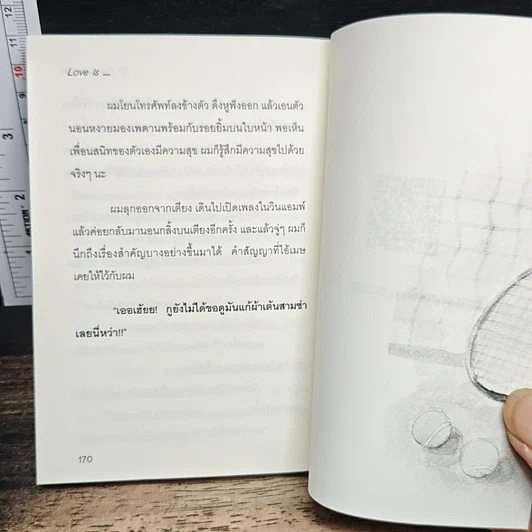 Love Is ...
ผมโยนโทรศัพท์ลงข้างตัว ดึงหูฟังออก แล้วเอนตัว
นอนหงายมองเพดานพร้อมกับรอยยิ้มบนใบหน้า พอเห็น
เพื่อนสนิทของตัวเองมีความสุข ผมก็รู้สึกมีความสุขไปด้วย
จริงๆ นะ
ผมลุกออกจากเตียง เดินไปเปิดเพลงในวินแอมพ์
แล้วค่อยกลับมานอนกลิ้งบนเตียงอีกครั้ง และแล้วจู่ๆ ผมก็
นึกถึงเรื่องสำคัญบางอย่างขึ้นมาได้ คำสัญญาที่ไอ้เมษ
เคยให้ไว้กับผม
"เออเฮ้ยย! กูยังไม่ได้ขอดูมันแก้ผ้าเต้นสามช่า
เลยนี่หว่า!!"
170
12
11
10
3
2